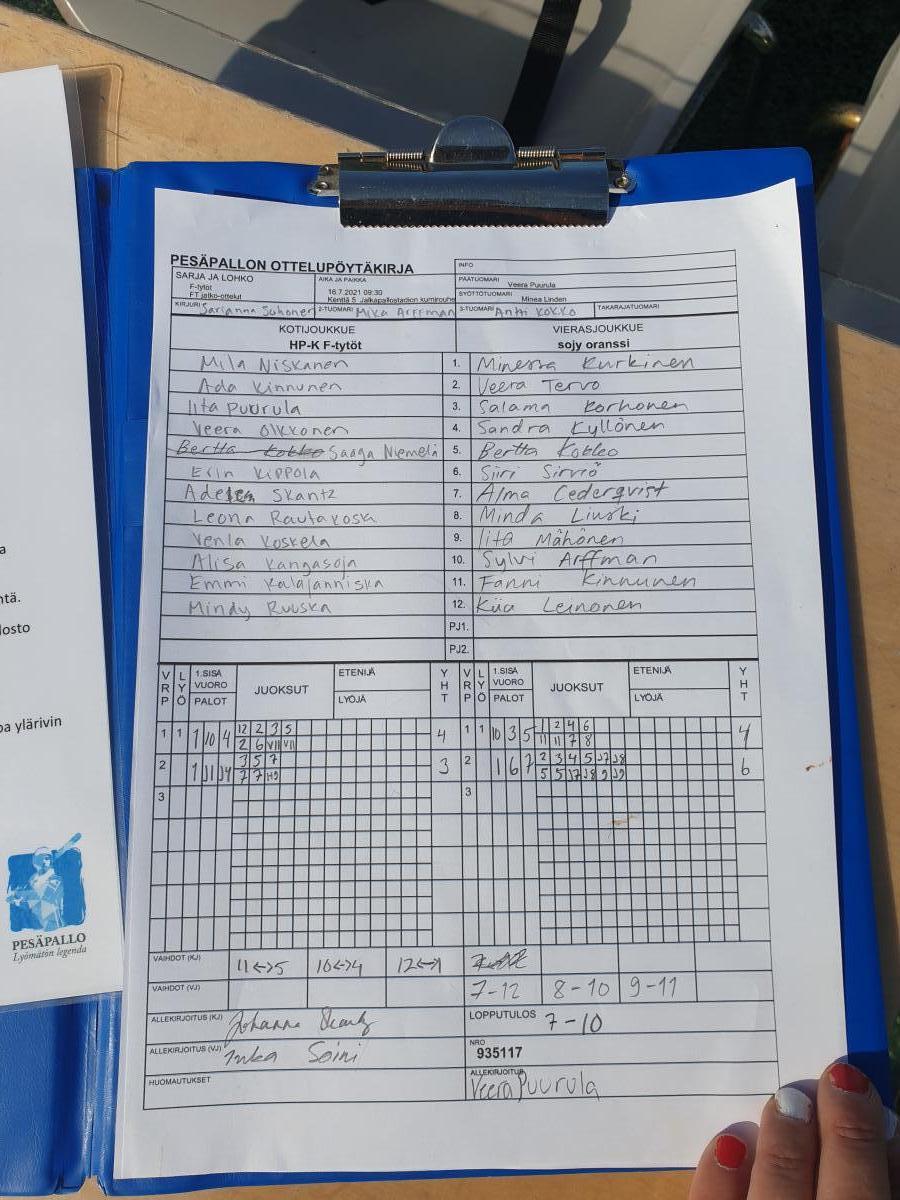 PESÄPALLON OTTELUPÖYTÄKIRJA
INFO
SARJA JA LOHKO
F-tytöt
FT jatko-ottelut
AIKA JA PAIKKA
16.7.2021 09:30
Kenttä 5 Jalkapallostadion kumirouhe
PÄÄTUOMARI
Veera Puurula
SYÖTTÖTUOMARI
Minea Linden
KIRJURI Sarianna Juhonen 2-TUOMARI Mika Arffman 3-TUOMARI Antti Kokko TAKARAJATUOMARI
KOTIJOUKKUE VIERASJOUKKUE
HP-K F-tytöt sojy oranssi
Mila Niskanen 1. Minerva Kurkinen
Ada Kinnunen 2. Veera Tervo
Iita Puurula 3. Salama Korhonen
Veera Olkkonen 4. Sandra Kyllönen
Bertta Kokko Saaga Niemelä 5. Bertta Kokko
Erin Kippola 6. Siiri Sirviö
Skantz 7. Alma Cederqvist
Leona Rautakoski 8. Minda Liuski
Venla Koskela 9. Iita Mähönen
Alisa Kangasoja 10. Sylvi Arffman
Emmi Kalajanniska 11. Fanni Kinnunen
Mindy Ruuska 12. Kiia Leinonen
PJ1.
PJ2.
VRP LYÖ 1.SISÄ VUORO PALOT JUOKSUT ETENIJÄ LYÖJÄ YHT VRP LYÖ 1.SISÄ VUORO PALOT JUOKSUT ETENIJÄ LYÖJÄ YHT
1 1 1 10 4 12 2 3 5 4 1 1 10 3 5 1 2 4 6 4
2 6 VII VII 11 11 7 8
2 1 11 14 3 5 7 3 2 1 6 7 2 3 4 5 17 18 6
7 7 5 5 17 18 9 19
3 3
VAIHDOT (KJ) 11<->5 10<->4 12<->1
VAIHDOT (VJ) 7-12 8-10 9-11
ALLEKIRJOITUS (KJ) Johanna Skantz LOPPUTULOS 7-10
ALLEKIRJOITUS (VJ) Inka Soini NRO
935117
HUOMAUTUKSET ALLEKIRJOITUS
Veera Puurula
a
ntä.
losto
oa ylärivin
PESÄPALLO
Lyömätön legenda